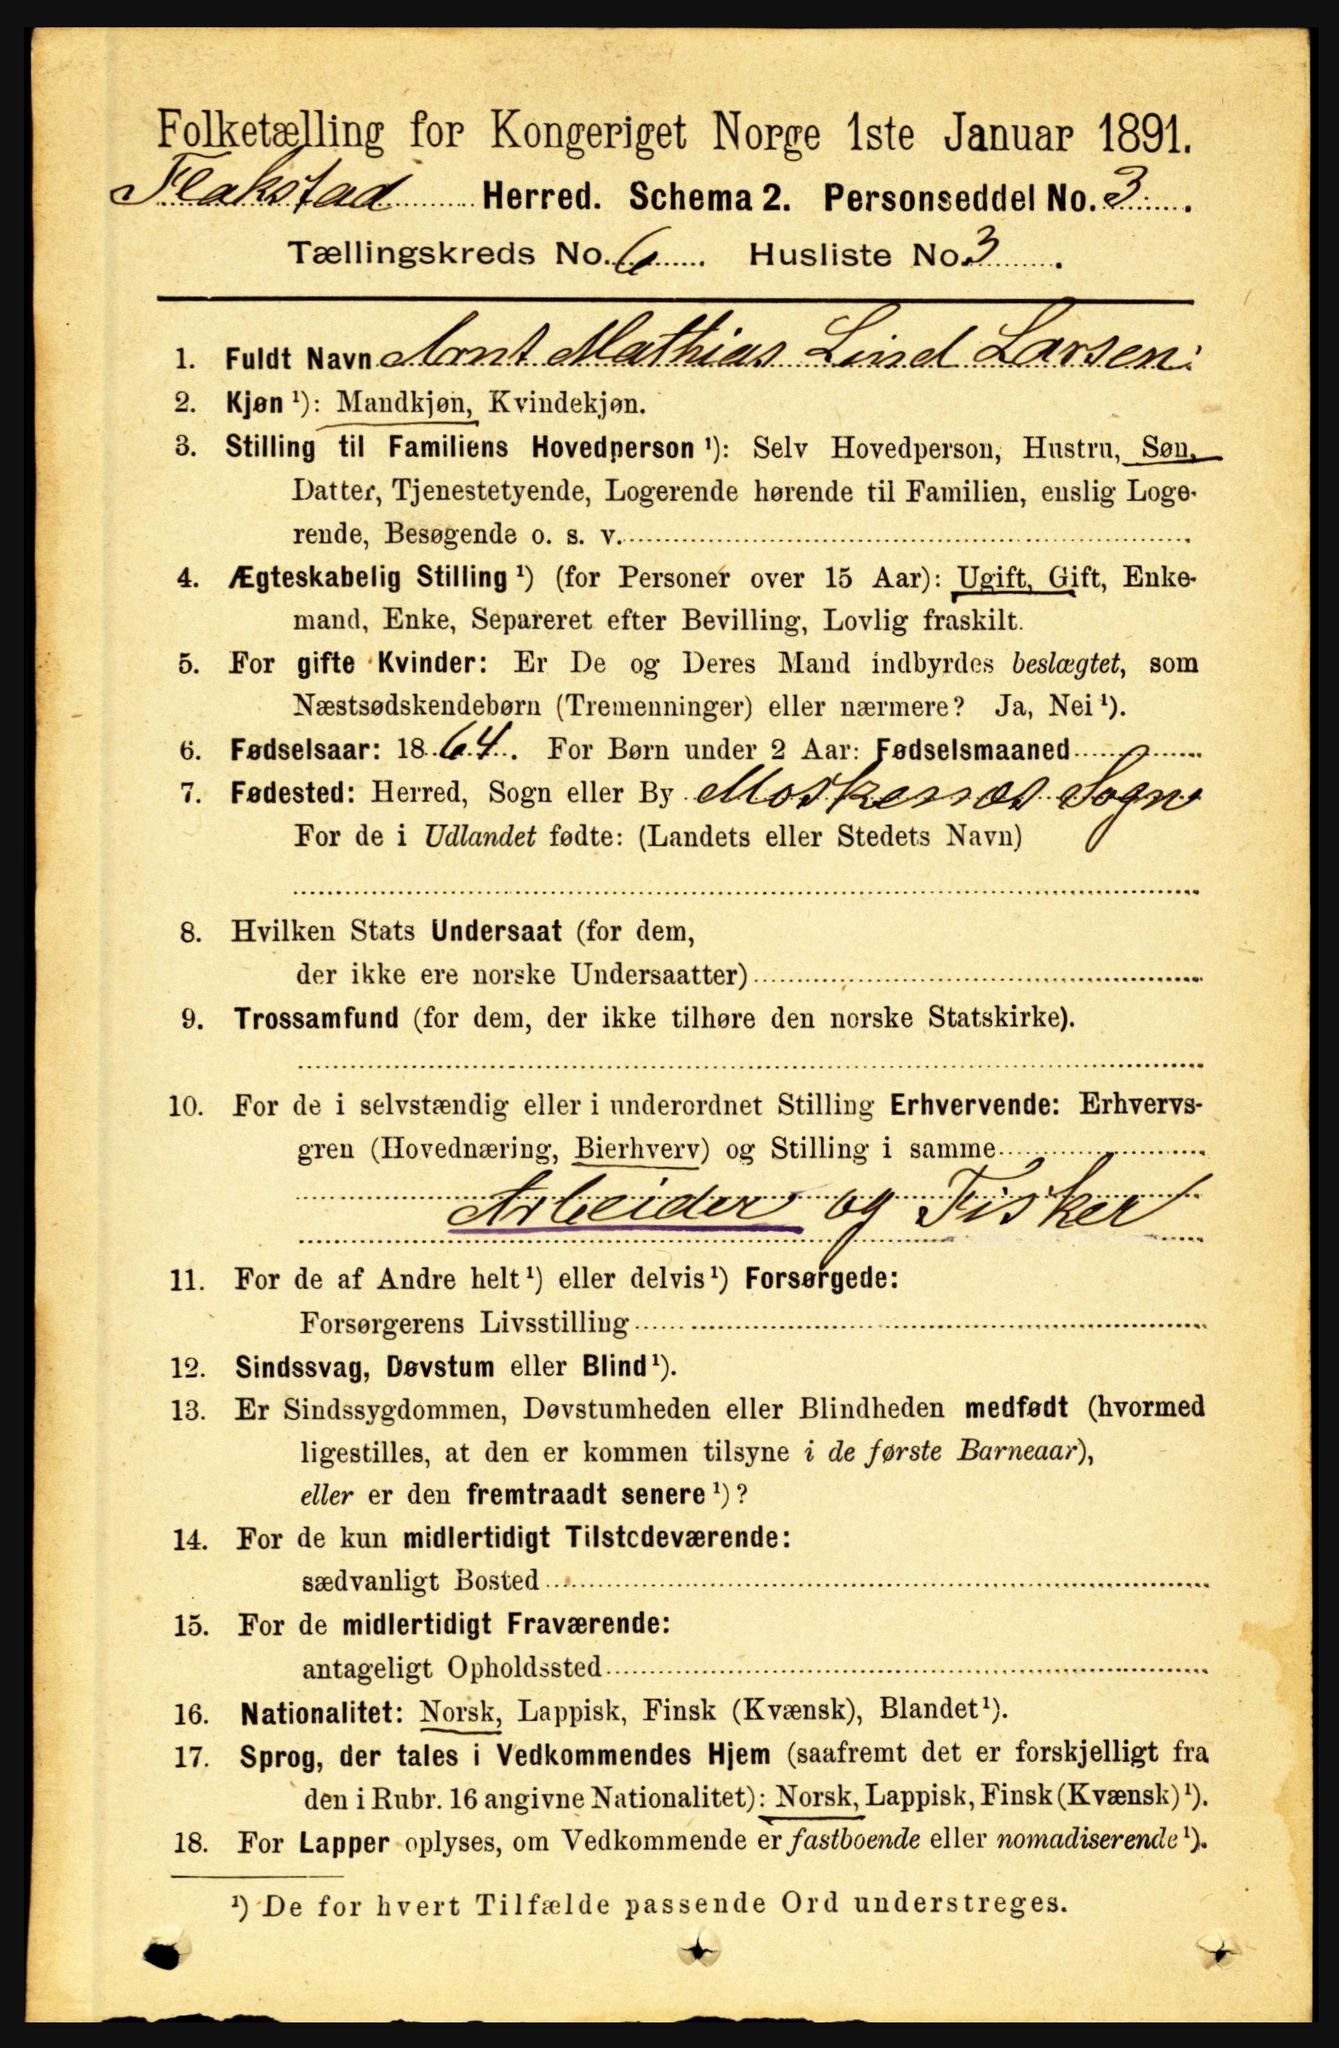 Folketælling for Kongeriget Norge 1ste Januar 1891.
Flakstad Herred. Schema 2. Personseddel No. 3.
Tællingskreds No. 6. Husliste No. 3.
1. Fuldt Navn Arnt Mathias Lind Larsen.
2. Kjøn ¹): Mandkjøn, Kvindekjøn.
3. Stilling til Familiens Hovedperson ¹): Selv Hovedperson, Hustru, Søn,
Datter, Tjenestetyende, Logerende hørende til Familien, enslig Loge-
rende, Besøgende o. s. v.
4. Ægteskabelig Stilling ¹) (for Personer over 15 Aar): Ugift, Gift, Enke-
mand, Enke, Separeret efter Bevilling, Lovlig fraskilt.
5. For gifte Kvinder: Er De og Deres Mand indbyrdes beslægtet, som
Næstsødskendebørn (Tremenninger) eller nærmere? Ja, Nei ¹).
6. Fødselsaar: 1864. For Børn under 2 Aar: Fødselsmaaned
7. Fødested: Herred, Sogn eller By Moskenæs Sogn
For de i Udlandet fødte: (Landets eller Stedets Navn)
8. Hvilken Stats Undersaat (for dem,
der ikke ere norske Undersaatter)
9. Trossamfund (for dem, der ikke tilhøre den norske Statskirke).
10. For de i selvstændig eller i underordnet Stilling Erhvervende: Erhvervs-
gren (Hovednæring, Bierhverv) og Stilling i samme
Arbeider og Fisker
11. For de af Andre helt ¹) eller delvis ¹) Forsørgede:
Forsørgerens Livsstilling
12. Sindssvag, Døvstum eller Blind ¹).
13. Er Sindssygdommen, Døvstumheden eller Blindheden medfødt (hvormed
ligestilles, at den er kommen tilsyne i de første Barneaar),
eller er den fremtraadt senere ¹)?
14. For de kun midlertidigt Tilstedeværende:
sædvanligt Bosted
15. For de midlertidigt Fraværende:
antageligt Opholdssted
16. Nationalitet: Norsk, Lappisk, Finsk (Kvænsk), Blandet ¹).
17. Sprog, der tales i Vedkommendes Hjem (saafremt det er forskjelligt fra
den i Rubr. 16 angivne Nationalitet): Norsk, Lappisk, Finsk (Kvænsk) ¹).
18. For Lapper oplyses, om Vedkommende er fastboende eller nomadiserende ¹).
¹) De for hvert Tilfælde passende Ord understreges.